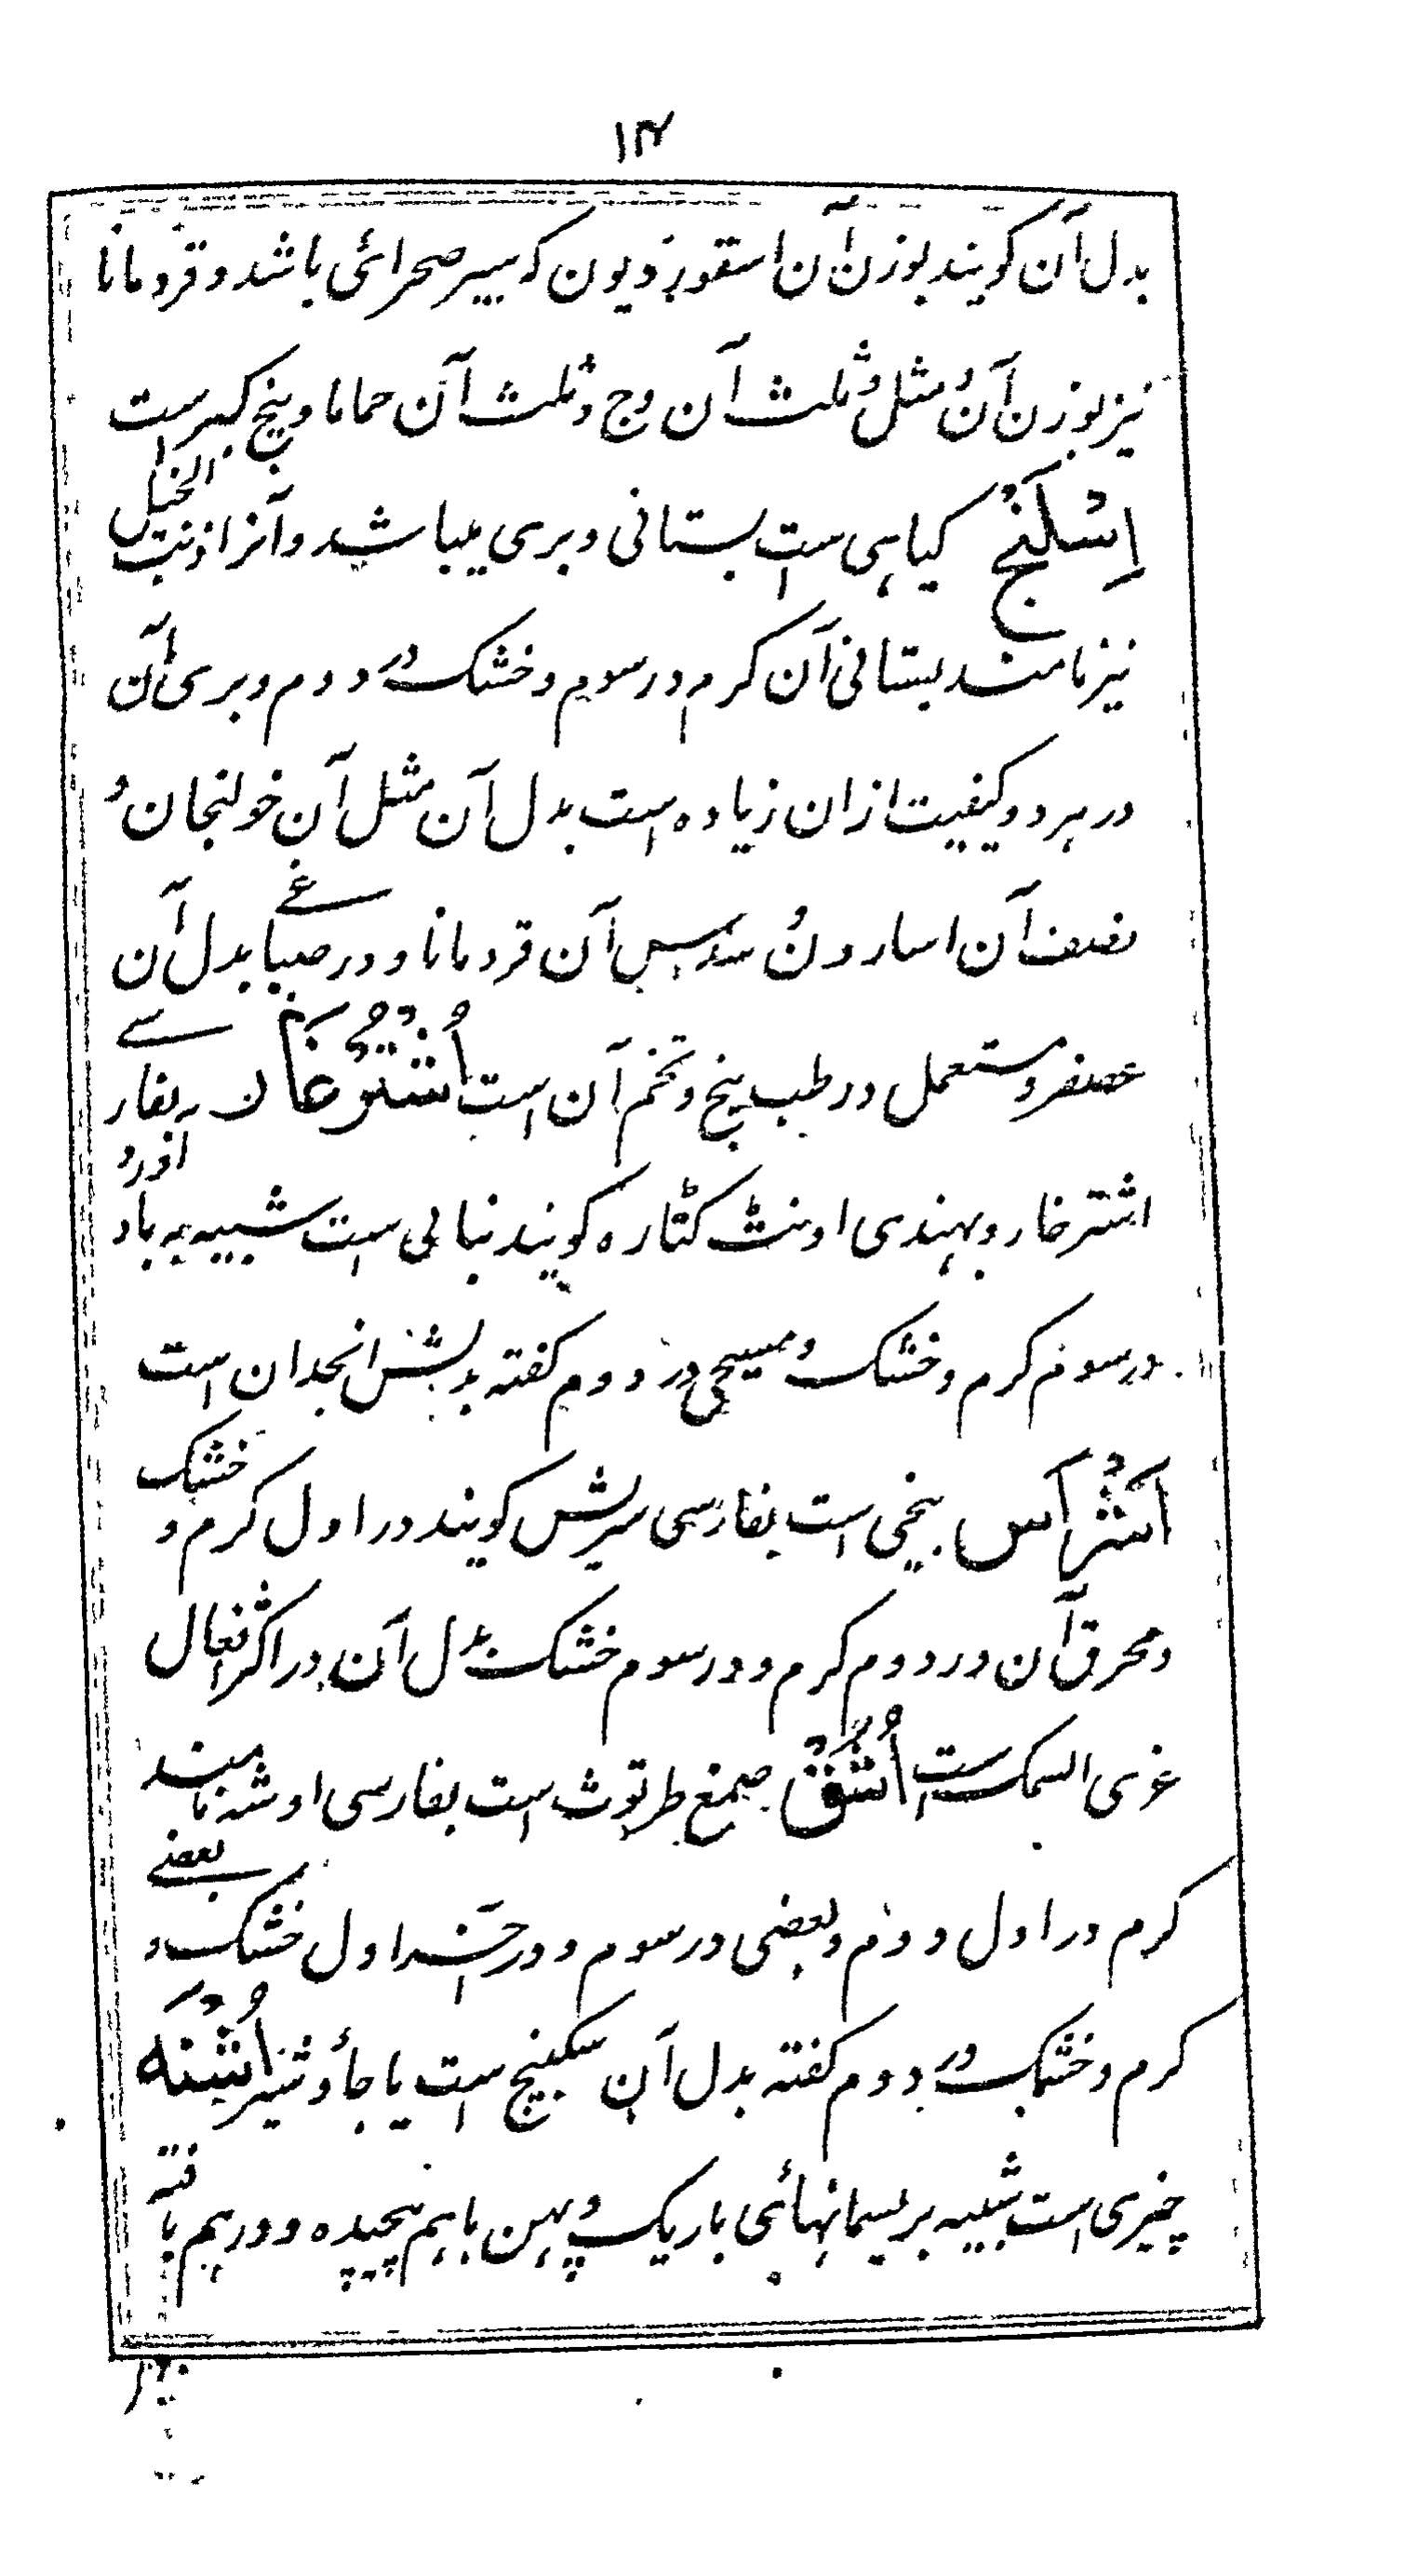 ۱۴
بدل آن کویند بوزن آن اسقوردیون که سیر صحرائی باشد و قردمانا
نیز بوزن آن و مثل و ثلث آن وج و ثلث آن حماما و بیخ کبر است
اِسْلَنج کیاهی ست بستانی و بری میباشد و آنرا ذنب الخیل
نیز نامند بستانی آن کرم در سوم و خشک در دوم و بری آن
در هر دو کیفیت ازان زیاده است بدل آن مثل آن خولنجان و
نصف آن اسارون و سدس آن قردمانا و در صباغی بدل آن
عصفر و مستعمل در طب بیخ و تخم آن است اُشْتُرْغَان بفارسے
اشترخار و بهندی اونٹ کٹاره کویند نباتی است شبیه به باداورد و
در سوم کرم و خشک و مسیحی در دوم کفته بدلش انجدان است
اَشْرَاس بیخی است بفارسی سریش کویند در اول کرم و خشک
و محرق آن در دوم کرم و در سوم خشک بدل آن در اکثر افعال
غری السمک ست اُشَّق صمغ طرثوث است بفارسی اوشه نامند
کرم در اول دوم و بعضی در سوم و در آخر اول خشک و بعضے
کرم و خشک در دوم کفته بدل آن سکبینج است یا جاوشیر اُشْنَه
چیزی است شبیه بریسمانهائی باریک و پهن باهم پیچیده و درهم بافته